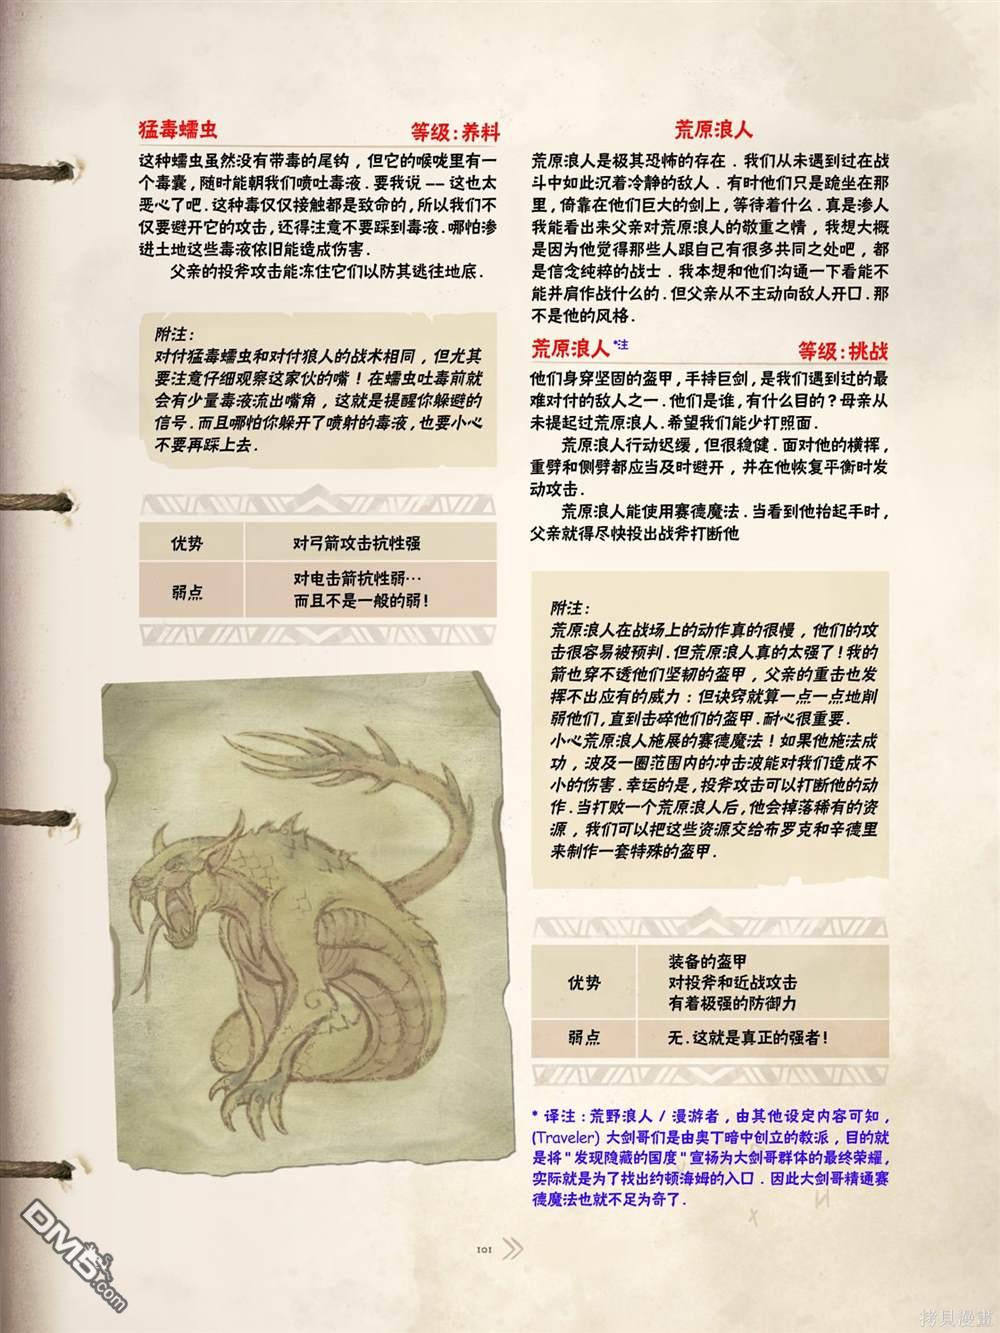 猛毒蠕虫
等级:养料
这种蠕虫虽然没有带毒的尾钩，但它的喉咙里有一
个毒囊,随时能朝我们喷吐毒液.要我说 -- 这也太
恶心了吧.这种毒仅仅接触都是致命的,所以我们不
仅要避开它的攻击,还得注意不要踩到毒液.哪怕渗
进土地这些毒液依旧能造成伤害.
父亲的投斧攻击能冻住它们以防其逃往地底.
附注:
对付猛毒蠕虫和对付狼人的战术相同，但尤其
要注意仔细观察这家伙的嘴！在蠕虫吐毒前就
会有少量毒液流出嘴角，这就是提醒你躲避的
信号.而且哪怕你躲开了喷射的毒液,也要小心
不要再踩上去.
优势
对弓箭攻击抗性强
弱点
对电击箭抗性弱…
而且不是一般的弱!
荒原浪人
荒原浪人是极其恐怖的存在．我们从未遇到过在战
斗中如此沉着冷静的敌人．有时他们只是跪坐在那
里,倚靠在他们巨大的剑上,等待着什么.真是渗人
我能看出来父亲对荒原浪人的敬重之情，我想大概
是因为他觉得那些人跟自己有很多共同之处吧，都
是信念纯粹的战士．我本想和他们沟通一下看能不
能并肩作战什么的.但父亲从不主动向敌人开口.那
不是他的风格.
荒原浪人*注
等级:挑战
他们身穿坚固的盔甲,手持巨剑,是我们遇到过的最
难对付的敌人之一.他们是谁,有什么目的?母亲从
未提起过荒原浪人.希望我们能少打照面.
荒原浪人行动迟缓,但很稳健.面对他的横挥,
重劈和侧劈都应当及时避开，并在他恢复平衡时发
动攻击.
荒原浪人能使用赛德魔法.当看到他抬起手时,
父亲就得尽快投出战斧打断他
附注:
荒原浪人在战场上的动作真的很慢，他们的攻
击很容易被预判.但荒原浪人真的太强了!我的
箭也穿不透他们坚韧的盔甲，父亲的重击也发
挥不出应有的威力：但诀窍就算一点一点地削
弱他们,直到击碎他们的盔甲.耐心很重要.
小心荒原浪人施展的赛德魔法!如果他施法成
功，波及一圈范围内的冲击波能对我们造成不
小的伤害.幸运的是,投斧攻击可以打断他的动
作.当打败一个荒原浪人后,他会掉落稀有的资
源，我们可以把这些资源交给布罗克和辛德里
来制作一套特殊的盔甲.
优势
装备的盔甲
对投斧和近战攻击
有着极强的防御力
弱点
无.这就是真正的强者!
* 译注:荒野浪人 / 漫游者，由其他设定内容可知，
(Traveler) 大剑哥们是由奥丁暗中创立的教派，目的就
是将"发现隐藏的国度"宣扬为大剑哥群体的最终荣耀,
实际就是为了找出约顿海姆的入口．因此大剑哥精通赛
德魔法也就不足为奇了.
101
DM5.com
拷貝漫畫